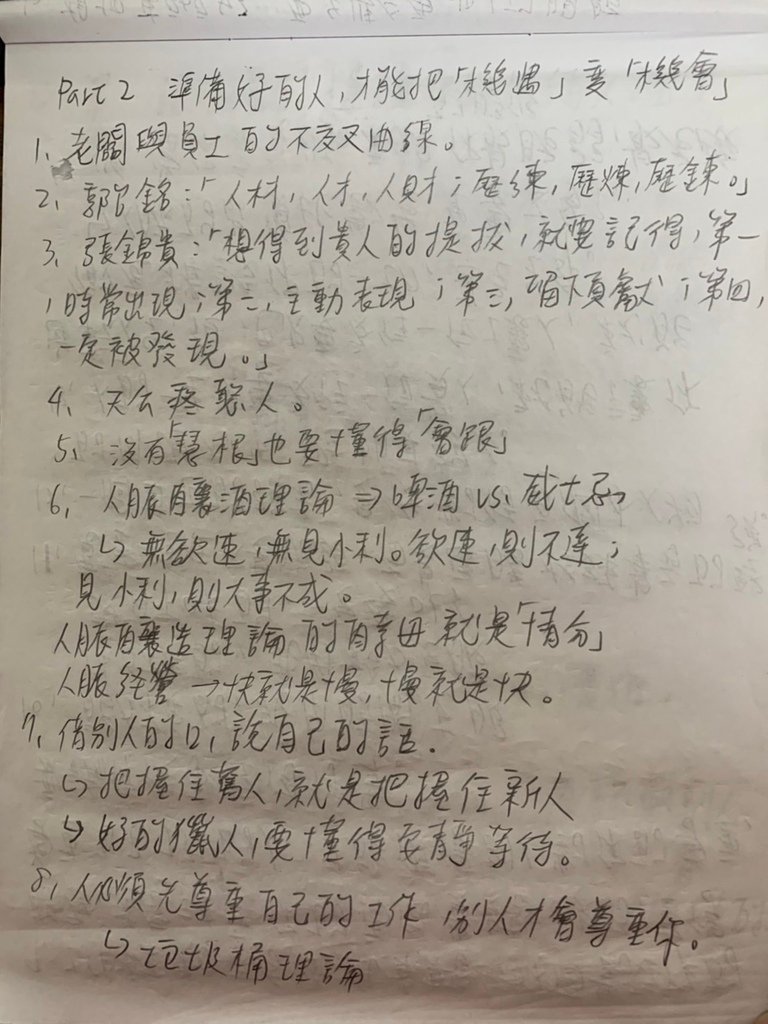 Part 2 準備好的人，才能把「機遇」變「機會」
1、老闆與員工的不交叉曲線。
2、郭台銘：「人材，人才，人財；歷練，歷煉，歷鍊。」
3、張錦貴：「想得到貴人的提拔，就要記得，第一
，時常出現；第二，主動表現；第三，貢獻；第四，
一定被發現。」
4、天公疼憨人。
5、沒有「慧根」也要懂得「會跟」
6、人脈釀酒理論 ⇒ 啤酒 vs. 威士忌
↳ 無欲速，無見小利。欲速，則不達；
見小利，則大事不成。
人脈釀造理論的酵母就是「情分」
人脈經營 → 快就是慢，慢就是快。
7、借別人的口，說自己的話.
↳ 把握住舊人，就是把握住新人
↳ 好的獵人，要懂得安靜等待。
8、人必須先尊重自己的工作，別人才會尊重你。
↳ 垃圾桶理論